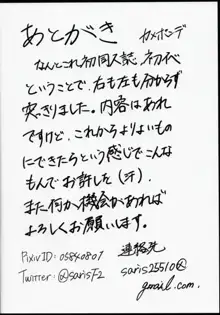 あとがき カメポンデ
なんとこれ初同人誌 初イベ
ということで、右も左も分からず
突っきりました。内容はあれ
ですけど、これからよりよいもの
にできたらという感じでこんな
もんでお許した(汗)、
また何か機会があれば
よろしくお願いします。
連絡先
Pixiv ID: 05840807
Twitter: @sarisF2
saris25510@
gmail.com.